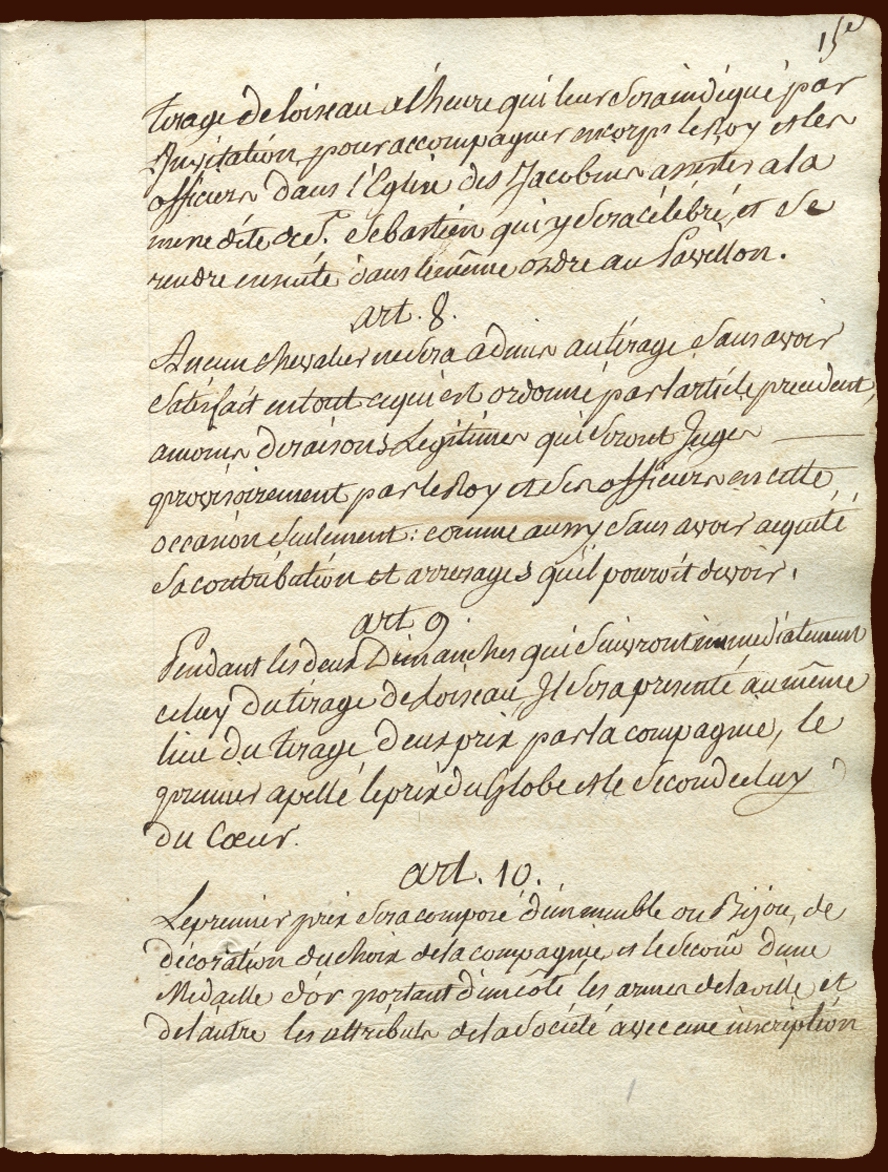 15e
tirage de loiseau a l'heure qui leur sera indiqué par
Invitation, pour accompagner en corps le Roy et les
officiers dans l'Eglise des Jacobins assister a la
messe dite de St. Sebastien qui y sera célébré, et se
rendre ensuite dans le même ordre au Pavillon.
art. 8.
Aucun chevalier ne sera admis au tirage sans avoir
satisfait en tout ce qui est ordonné par l'article precedent,
amoins de raisons Legitimes qui seront Juges
provisoirement par le Roy et ses officiers en cette
occasion seulement : comme aussy sans avoir acquité
sa contribution et arrerages qu'il pouroit devoir.
art 9.
Pendant les deux Dimanches qui suivront immediatement
celuy du tirage de Loiseau Il sera presenté au même
lieu du tirage deux prix par la compagnie, le
premier apellé le prix du Globe et le second celuy
du Cœur.
art. 10.
Le premier prix sera composé d'un meuble ou Bijou, de
décoration du choix de la compagnie, et le second d'une
Medaille d'or portant d'un côté les armes de la ville et
de l'autre les attributs de la Société avec une inscription